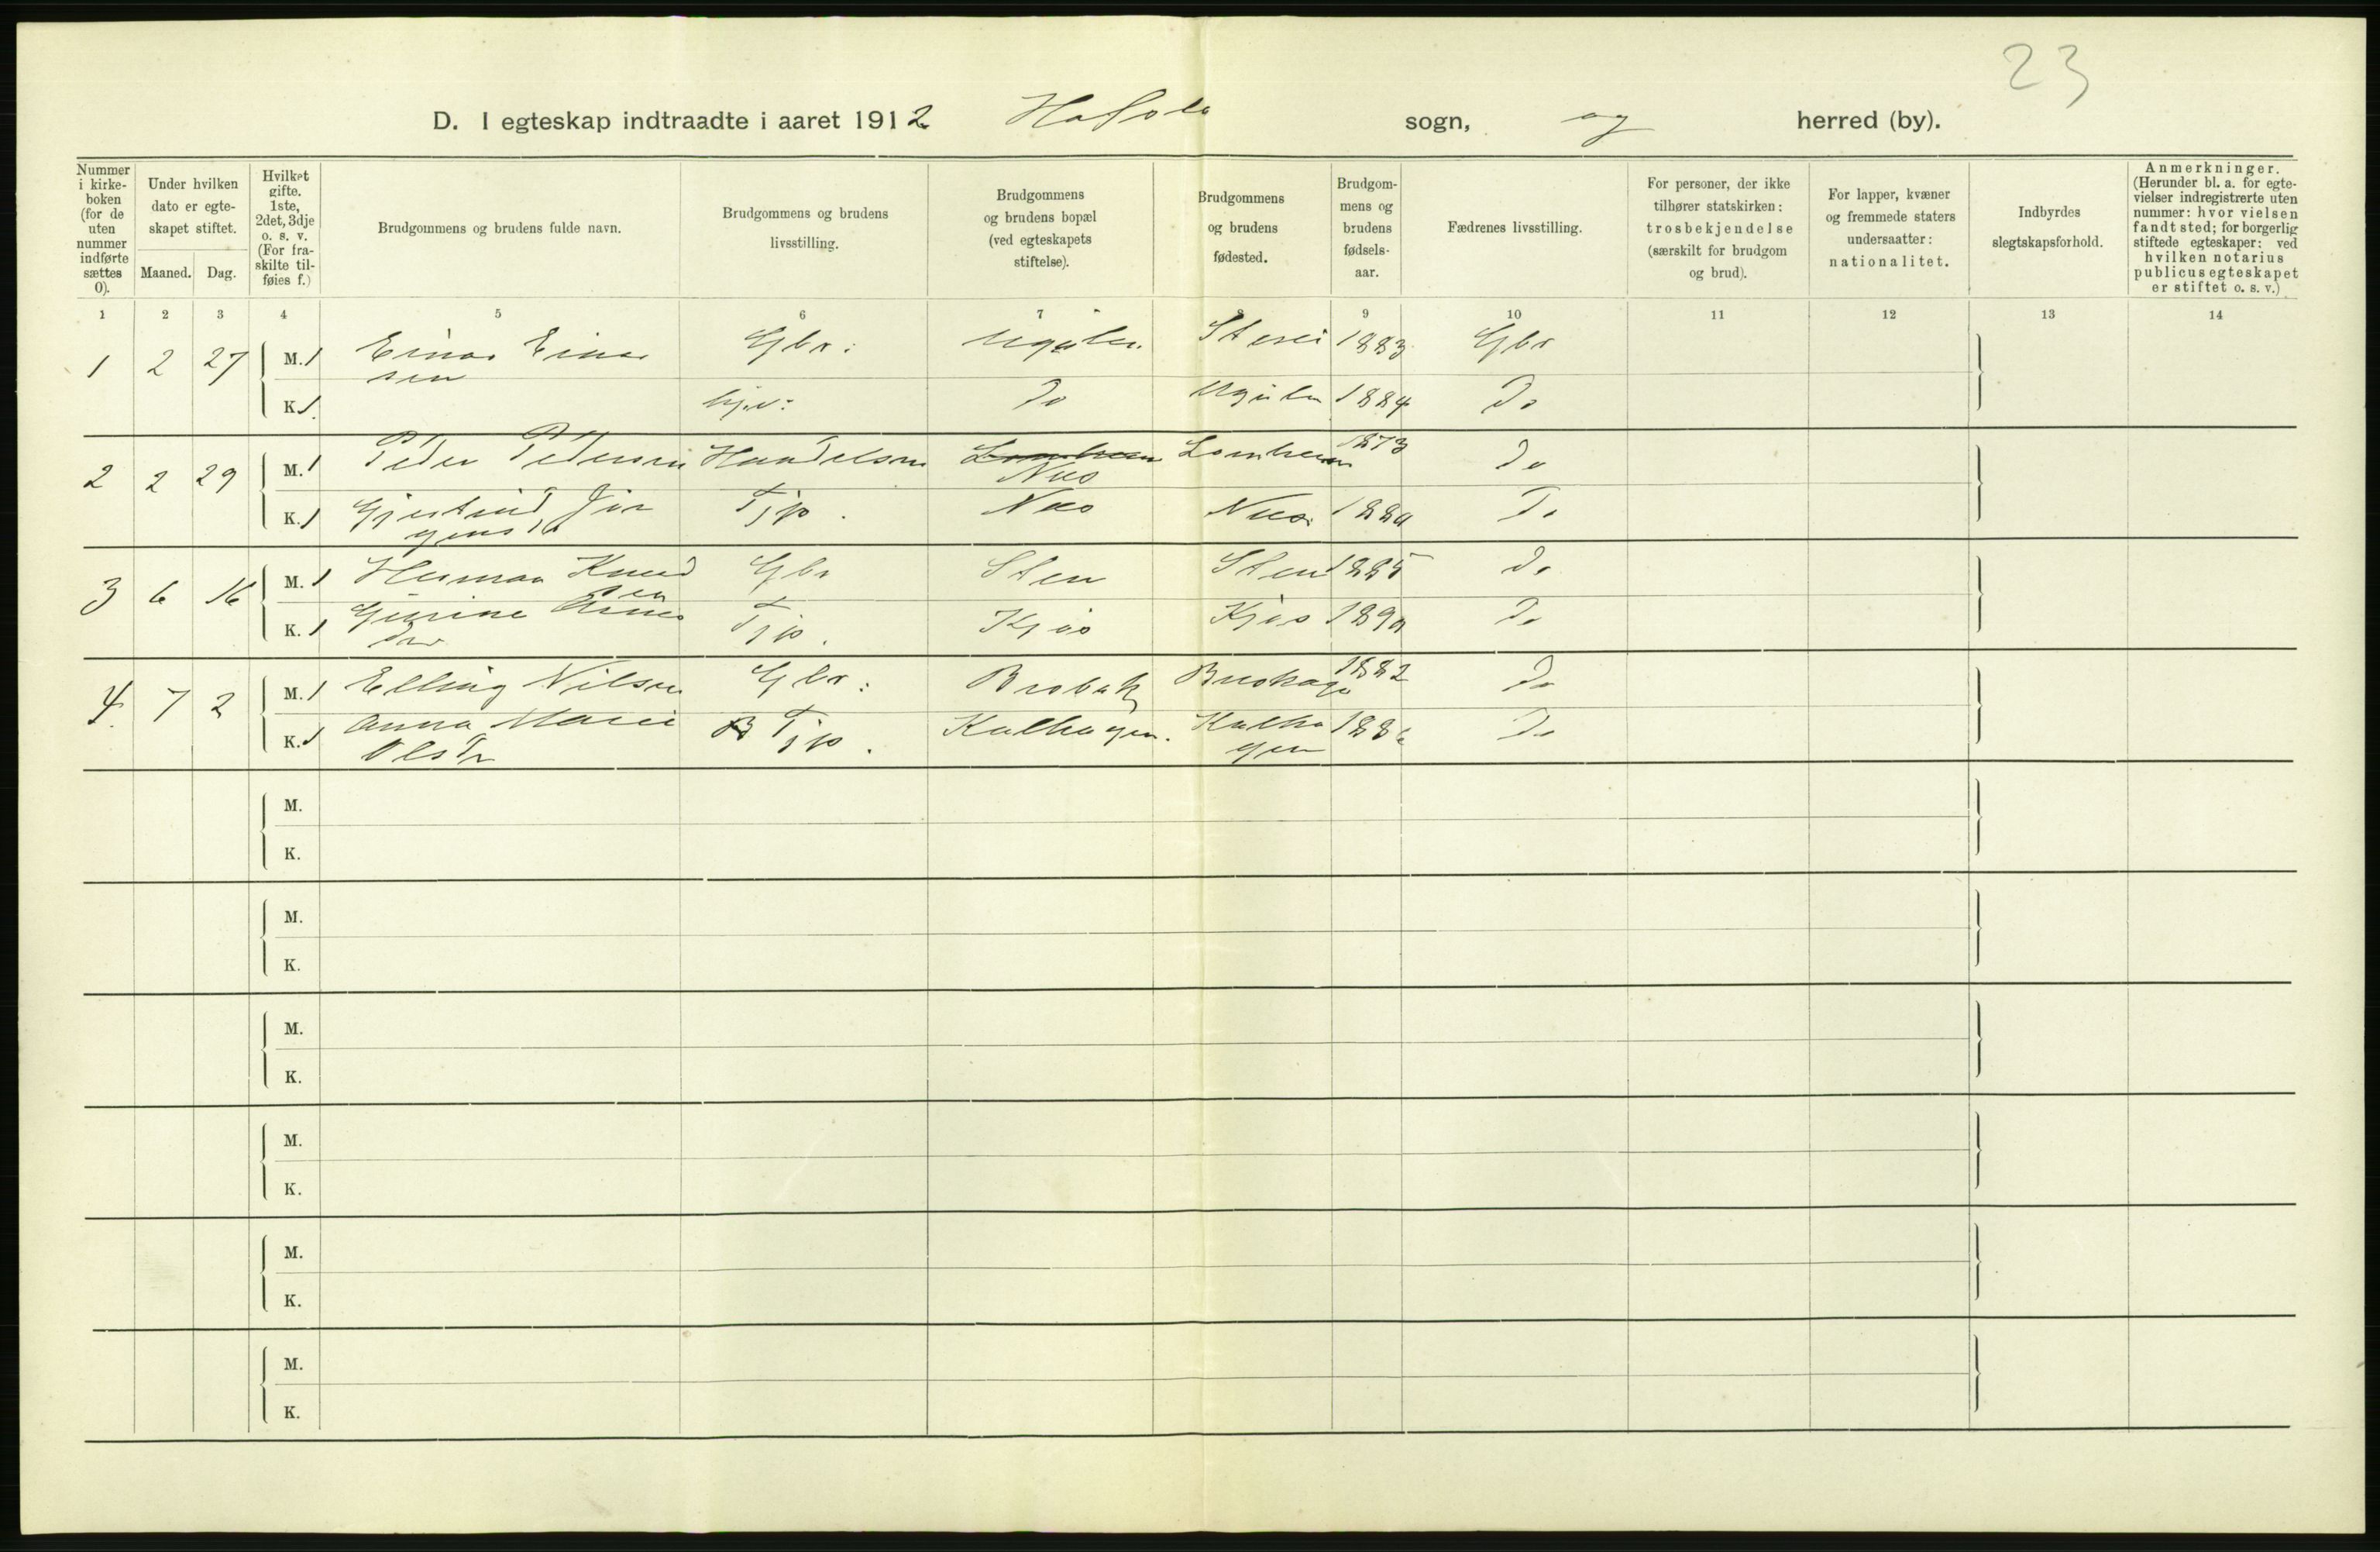 23
D. I egteskap indtraadte i aaret 1912 Hafslo sogn, og herred (by).
Nummer i kirke-boken (for de uten nummer indførte sættes 0).
Under hvilken dato er egte-skapet stiftet.
Maaned. Dag.
Hvilket gifte. 1ste, 2det, 3dje o. s. v. (For fra-skilte til-føies f.)
Brudgommens og brudens fulde navn.
Brudgommens og brudens livsstilling.
Brudgommens og brudens bopæl (ved egteskapets stiftelse).
Brudgommens og brudens fødested.
Brudgom-mens og brudens fødsels-aar.
Fædrenes livsstilling.
For personer, der ikke tilhører statskirken: trosbekjendelse (særskilt for brudgom og brud).
For lapper, kvæner og fremmede staters undersaatter: nationalitet.
Indbyrdes slegtskapsforhold.
Anmerkninger. (Herunder bl. a. for egte-vielser indregistrerte uten nummer: hvor vielsen fandt sted; for borgerlig stiftede egteskaper: ved hvilken notarius publicus egteskapet er stiftet o. s. v.)
1 2 3 4 5 6 7 8 9 10 11 12 13 14
1 2 27 M. 1 Einar Einar Gbr: 1883 Gbr
sen
K. 1 Do 1884 Do
2 2 29 M. 1 Peder Pedersen Handelsm Lomheim Lomheim 1873 Do
Nes
K. 1 Gjertrud Jør Tjp. Nes Nes 188 Do
gensd
3 6 16 M. 1 Herman Knud Gbr Sten Sten 1885 Do
sen
K. 1 Tjp. Kjos Kjos 189 Do
4 7 2 M. 1 Elling Nilsen Gbr: Brobak 1882 Do
K. 1 Anna Marie Tjp. Kalhagen. Kalha 188 Do
Olsdr gen
M.
K.
M.
K.
M.
K.
M.
K.
M.
K.
M.
K.